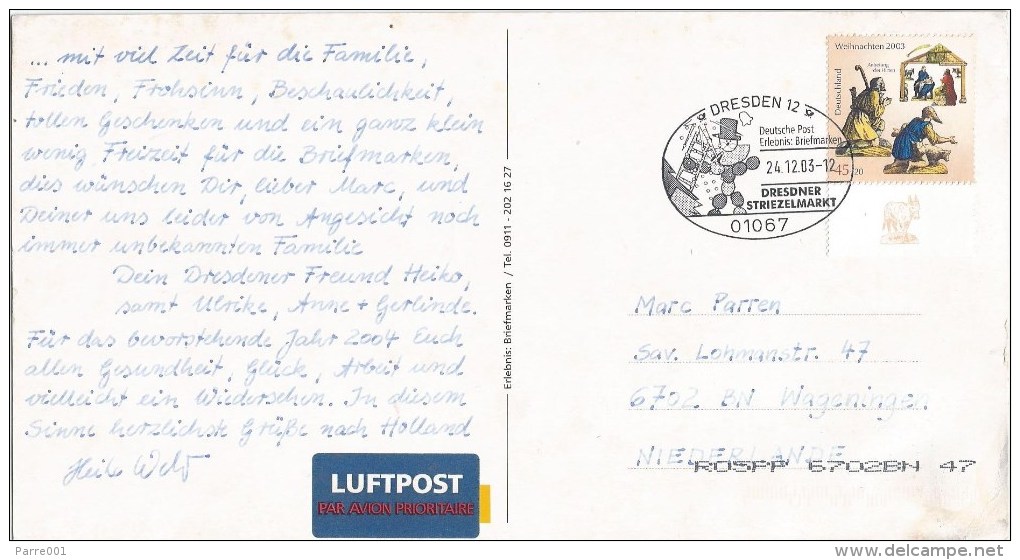 ... mit viel Zeit für die Familie,
Frieden, Frohsinn, Beschaulichkeit,
tollen Geschenken und ein ganz klein
wenig Freizeit für die Briefmarken,
dies wünschen Dir, lieber Marc, und
Deiner uns leider von Angesicht noch
immer unbekannten Familie
Dein Dresdener Freund Heiko,
samt Ulrike, Anne + Gerlinde.
Für das bevorstehende Jahr 2004 Euch
allen Gesundheit, Glück, Arbeit und
vielleicht ein Wiedersehen. In diesem
Sinne herzlichste Grüße nach Holland
LUFTPOST
PAR AVION PRIORITAIRE
Erlebnis: Briefmarken / Tel. 0911 - 202 16 27
DRESDEN 12
Deutsche Post
Erlebnis: Briefmarken
24.12.03-12
DRESDNER
STRIEZELMARKT
01067
Weihnachten 2003
Anbetung
der Hirten
Deutschland
45+20
Marc Parren
Sav. Lohmanstr. 47
6702 BN Wageningen
NIEDERLANDE
ROSPP 6702BN 47
Parre001
delcampe.net